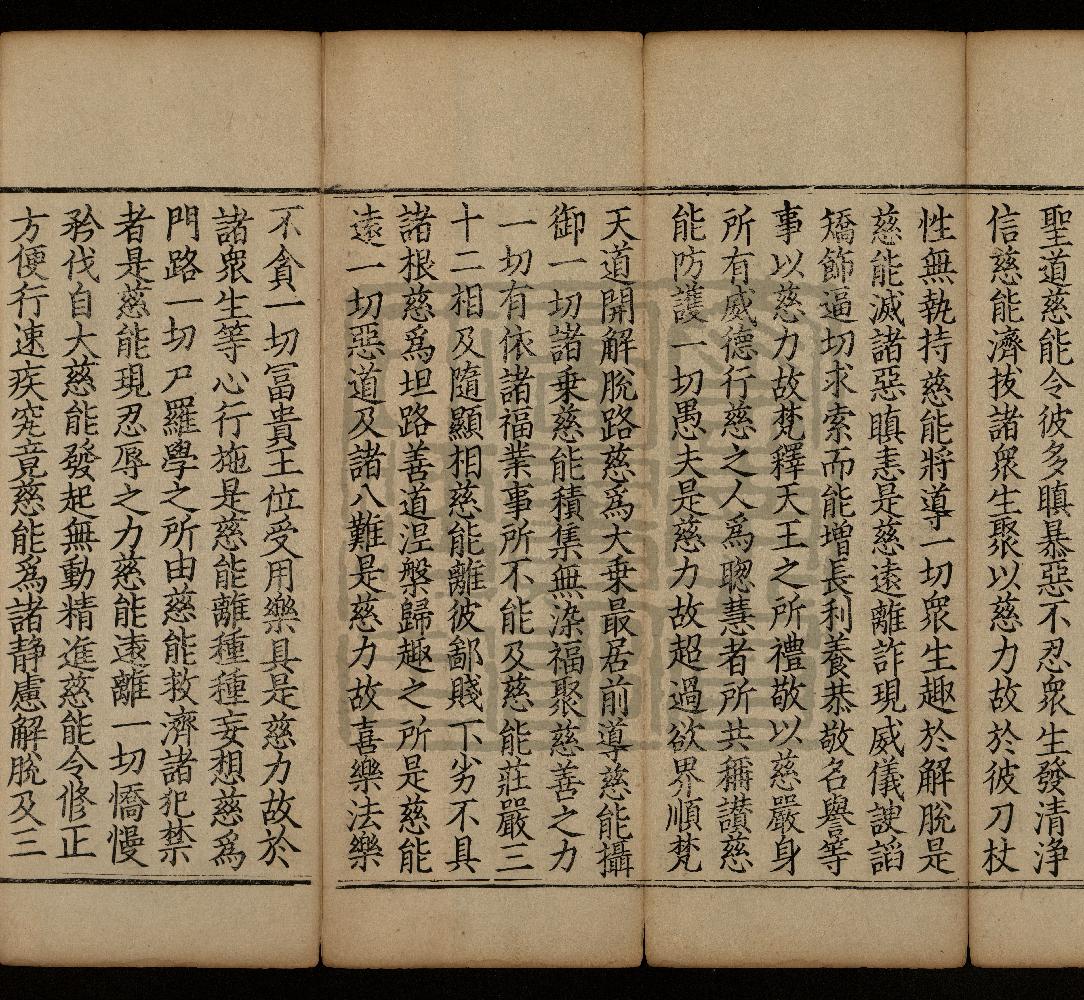 聖道慈能令彼多瞋暴惡不忍衆生發清淨
信慈能濟拔諸衆生聚以慈力故於彼刀杖
性無執持慈能將導一切衆生趣於解脫是
慈能滅諸惡瞋恚是慈遠離詐現威儀諛謟
矯飾逼切求索而能增長利養恭敬名譽等
事以慈力故梵釋天王之所禮敬以慈嚴身
所有威德行慈之人爲聰慧者所共稱讃慈
能防護一切愚夫是慈力故超過欲界順梵
天道開解脫路慈爲大乗最居前導慈能攝
御一切諸乗慈能積集無染福聚慈善之力
一切有依諸福業事所不能及慈能莊嚴三
十二相及隨顯相慈能離彼鄙賤下劣不具
諸根慈爲坦路善道涅槃歸趣之所是慈能
遠一切惡道及諸八難是慈力故喜樂法樂
不貪一切冨貴王位受用樂具是慈力故於
諸衆生等心行施是慈能離種種妄想慈爲
門路一切尸羅學之所由慈能救濟諸犯禁
者是慈能現忍辱之力慈能逺離一切憍慢
矜伐自大慈能發起無動精進慈能令修正
方便行速疾究竟慈能爲諸静慮解脫及三